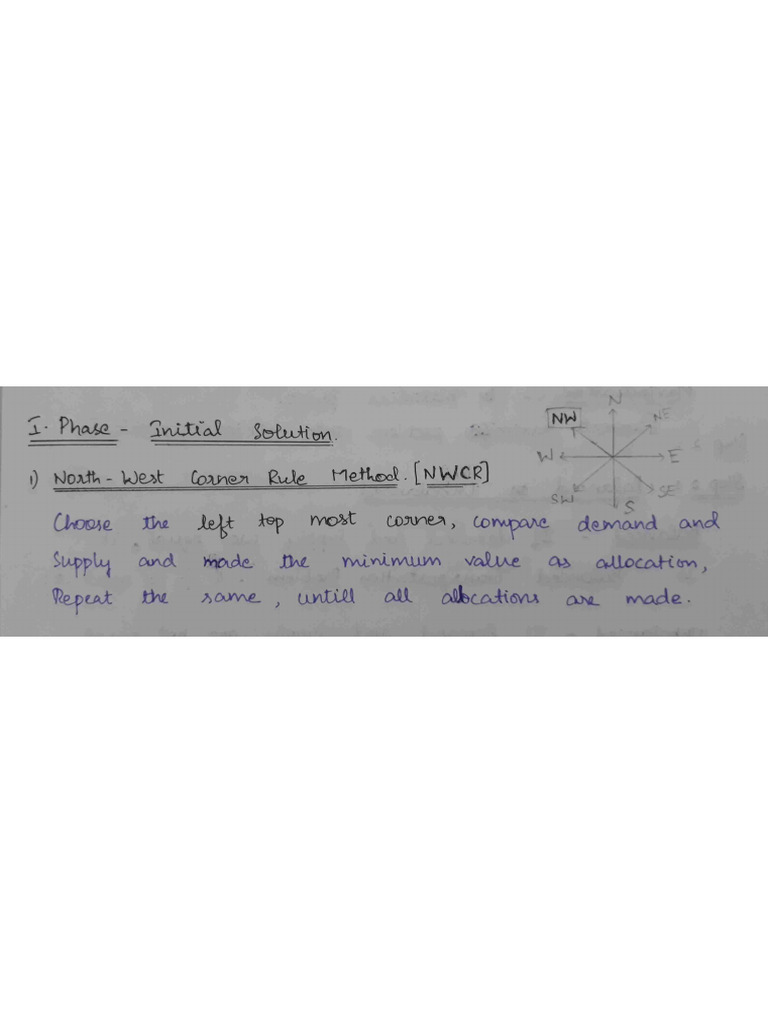 I. Phase - Initial Solution.
1) North-West Corner Rule Method. [NWCR]
Choose the left top most corner, compare demand and
Supply and made the minimum value as allocation,
Repeat the same, untill all allocations are made.
N
NW
NE
W
E
SW
SE
S